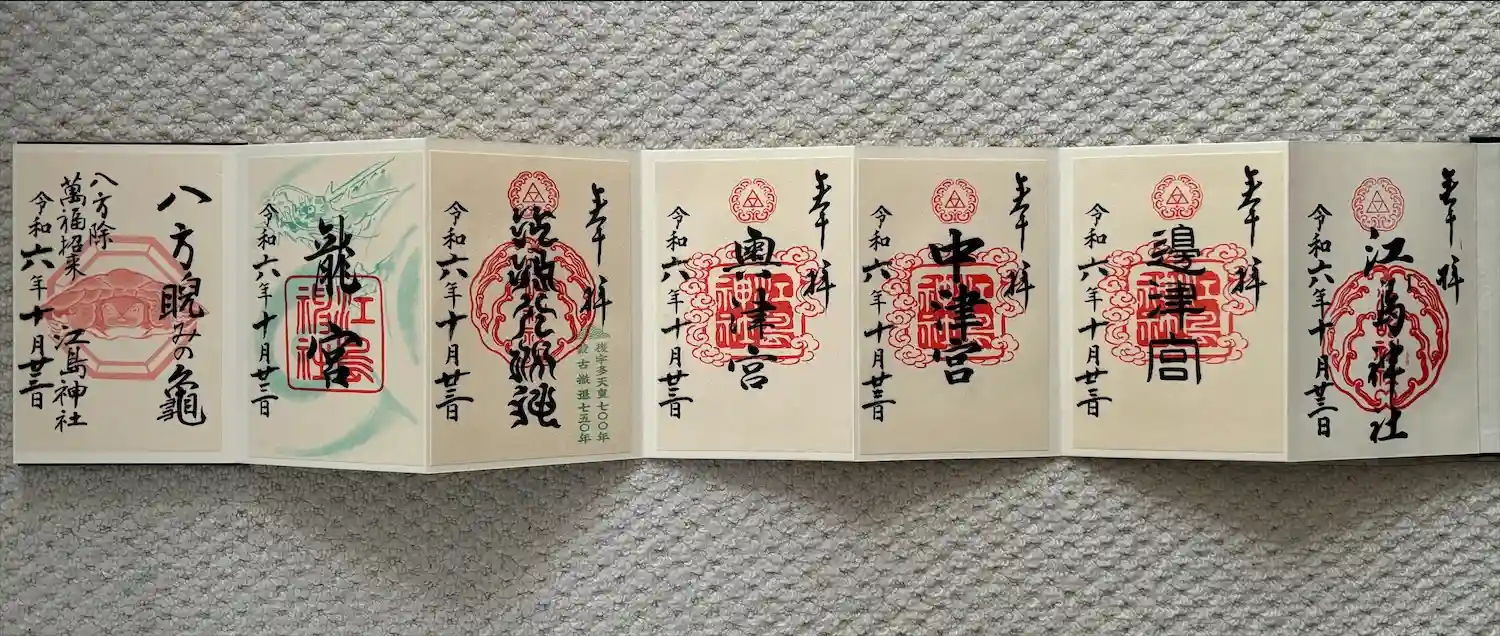 奉拝
江島神社
令和六年十月廿三日
奉拝
邊津宮
江島神社
令和六年十月廿三日
奉拝
中津宮
江島神社
令和六年十月廿三日
奉拝
奥津宮
江島神社
令和六年十月廿三日
奉拝
後宇多天皇七〇〇年
古 退七五〇年
令和六年十月廿三日
龍宮
江島神社
令和六年十月廿三日
八方睨みの龜
八方除
萬福招来
江島神社
令和六年十月廿三日